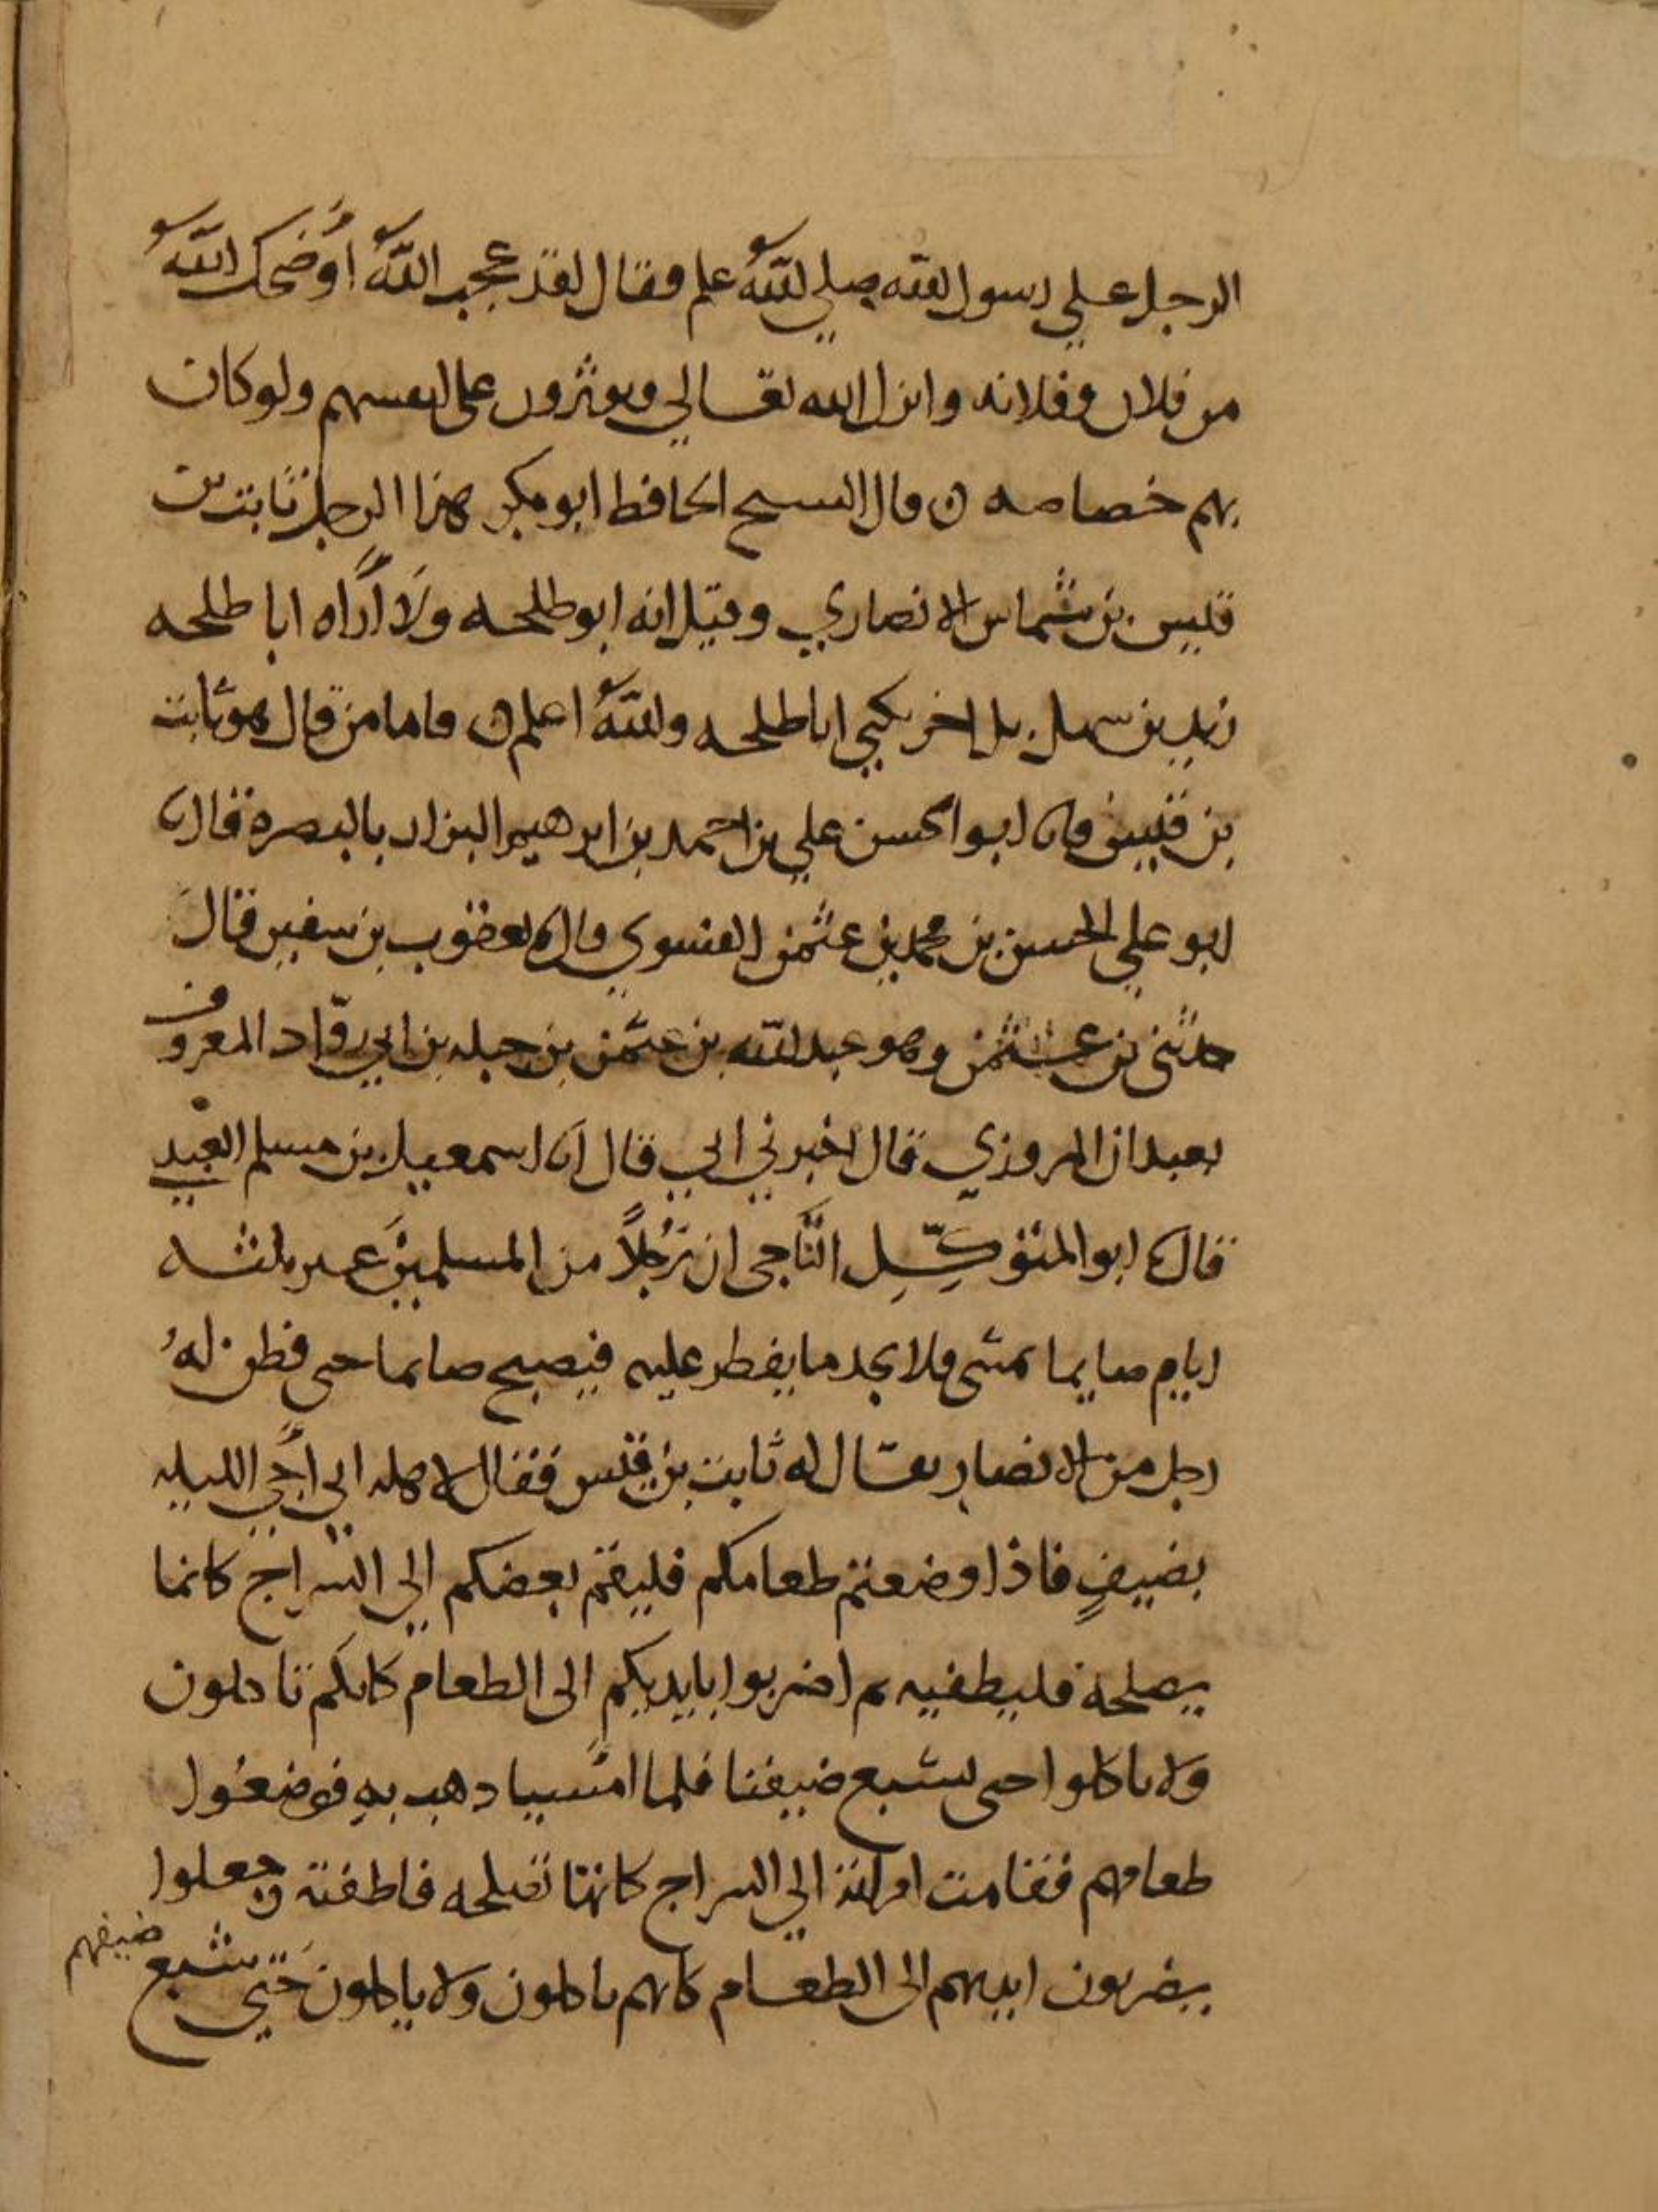 الرجل علي رسول الله صلي الله علم فقال لقد عجب الله أو ضحك الله
من فلان وفلانه وانزل الله تعالي ويوثرون على انفسهم ولو كان
بهم خصاصه ن قال الشيخ الحافظ ابو بكر هذا الرجل ثابت بن
قيس بن شماس الانصاري وقيل انه ابو طلحه ولا أُراه ابا طلحه
زيد بن سهل بل اخر يكني ابا طلحه والله اعلم ن فاما من قال هو ثابت
بن قيس فان ابو الحسن علي بن احمد بن ابرهيم البزاز بالبصرة قال نا
ابو علي الحسن بن محمد بن عثمن الفسوي قال نا يعقوب بن سفين قال
حدثني بن عثمن وهو عبد الله بن عثمن بن جبله بن ابي روّاد المعروف
بعبدان المروزي قال اخبرني ابي قال انا اسمعيل بن مسلم العبدي
قال نا ابو المتوكّل النَّاجي ان رَجُلاً من المسلمين عبر ثلثه
ايام صايما يمشي فلا يجد ما يفطر عليه فيصبح صايما حتى فطن لهُ
رجل من الانصار يقال له ثابت بن قيس فقال لاهله اني أجي الليله
بضيفٍ فاذا وضعتم طعامكم فليقم بعضكم الي السراج كانما
يصلحه فليطفيه ثم اضربوا بايديكم الى الطعام كانكم تاكلون
ولا تاكلوا حتى يشبع ضيفنا فلما امسيا ذهب به فوضعوا
طعامهم فقامت امراته الي السراج كانها تصلحه فاطفته وجعلوا
يضربون ايديهم الى الطعام كانهم ياكلون ولا ياكلون حَتي شبع
ضيفهم